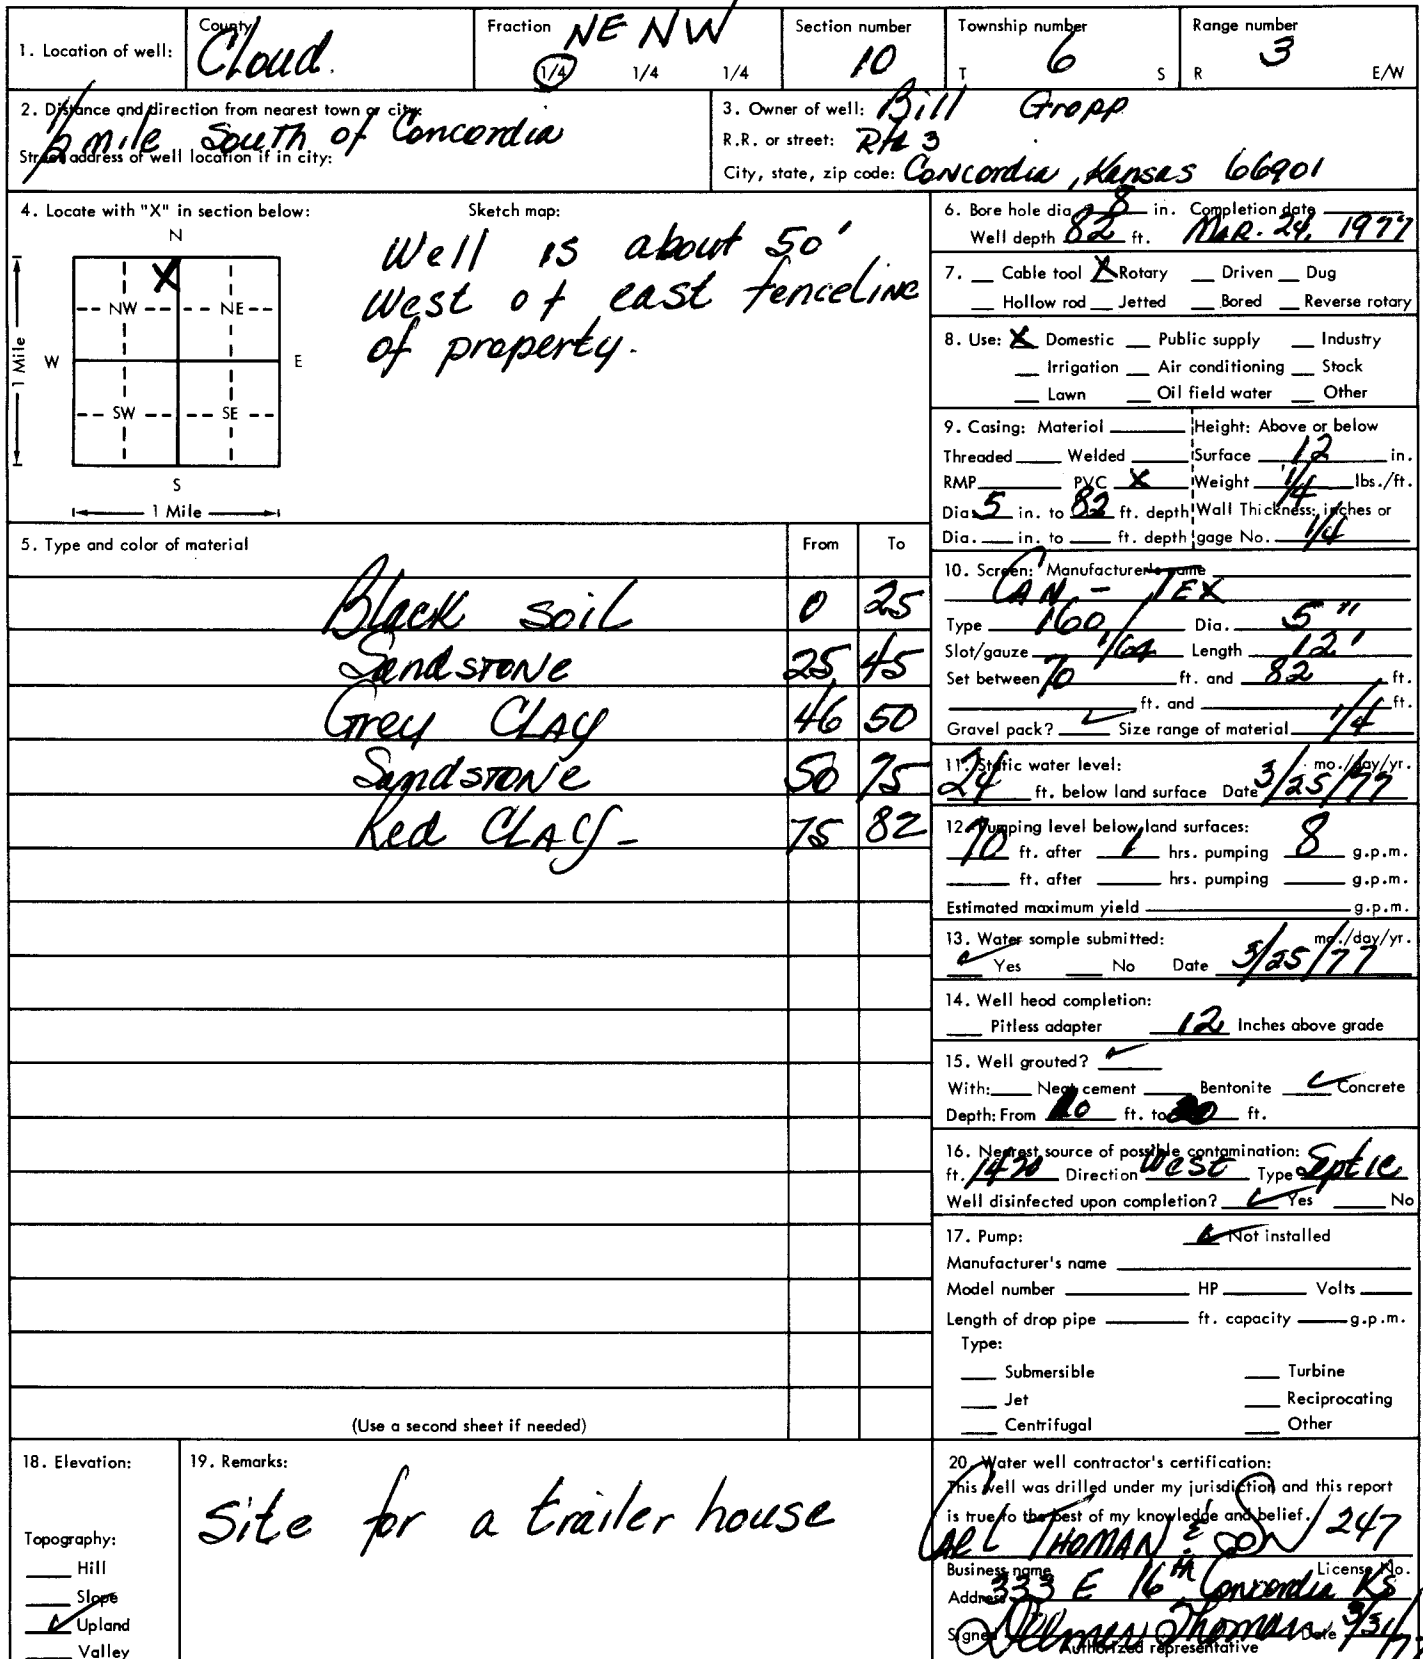 1. Location of well: County Cloud. Fraction NE NW 1/4 1/4 1/4 Section number 10 Township number T 6 S Range number R 3 E/W
2. Distance and direction from nearest town or city:
1/2 mile South of Concordia
Street address of well location if in city:
3. Owner of well: Bill Gropp
R.R. or street: Rt 3
City, state, zip code: Concordia, Kansas 66901
4. Locate with "X" in section below:
N
X
NW NE
W E
SW SE
S
1 Mile
1 Mile
Sketch map:
Well is about 50'
West of east fenceline
of property.
5. Type and color of material From To
Black soil 0 25
Sandstone 25 45
Grey Clay 46 50
Sandstone 50 75
Red Clay - 75 82
(Use a second sheet if needed)
6. Bore hole dia. 8 in. Completion date
Well depth 82 ft. Mar. 24, 1977
7. Cable tool X Rotary Driven Dug
Hollow rod Jetted Bored Reverse rotary
8. Use: X Domestic Public supply Industry
Irrigation Air conditioning Stock
Lawn Oil field water Other
9. Casing: Material Height: Above or below
Threaded Welded Surface 12 in.
RMP PVC X Weight 1/4 lbs./ft.
Dia. 5 in. to 82 ft. depth Wall Thickness: inches or
Dia. in. to ft. depth gage No. 1/4
10. Screen: Manufacturer's name
Can-Tex
Type 160 Dia. 5"
Slot/gauze 1/64 Length 12'
Set between 70 ft. and 82 ft.
ft. and ft.
Gravel pack? ✓ Size range of material 1/4
11. Static water level: mo./day/yr.
24 ft. below land surface Date 3/25/77
12. Pumping level below land surfaces:
70 ft. after 1 hrs. pumping 8 g.p.m.
ft. after hrs. pumping g.p.m.
Estimated maximum yield g.p.m.
13. Water sample submitted: mo./day/yr.
✓ Yes No Date 3/25/77
14. Well head completion:
Pitless adapter 12 Inches above grade
15. Well grouted? ✓
With: Neat cement Bentonite ✓ Concrete
Depth: From ft. to ft.
16. Nearest source of possible contamination:
ft. Direction West Type Septic
Well disinfected upon completion? ✓ Yes No
17. Pump: ✓ Not installed
Manufacturer's name
Model number HP Volts
Length of drop pipe ft. capacity g.p.m.
Type:
Submersible Turbine
Jet Reciprocating
Centrifugal Other
18. Elevation:
Topography:
Hill
Slope
✓ Upland
Valley
19. Remarks:
Site for a trailer house
20. Water well contractor's certification:
This well was drilled under my jurisdiction and this report
is true to the best of my knowledge and belief.
Carl Thoman & Son 247
Business name License No.
Address 333 E 16th Concordia KS
Signed Delmer Thoman Date 3/31/77
Authorized representative